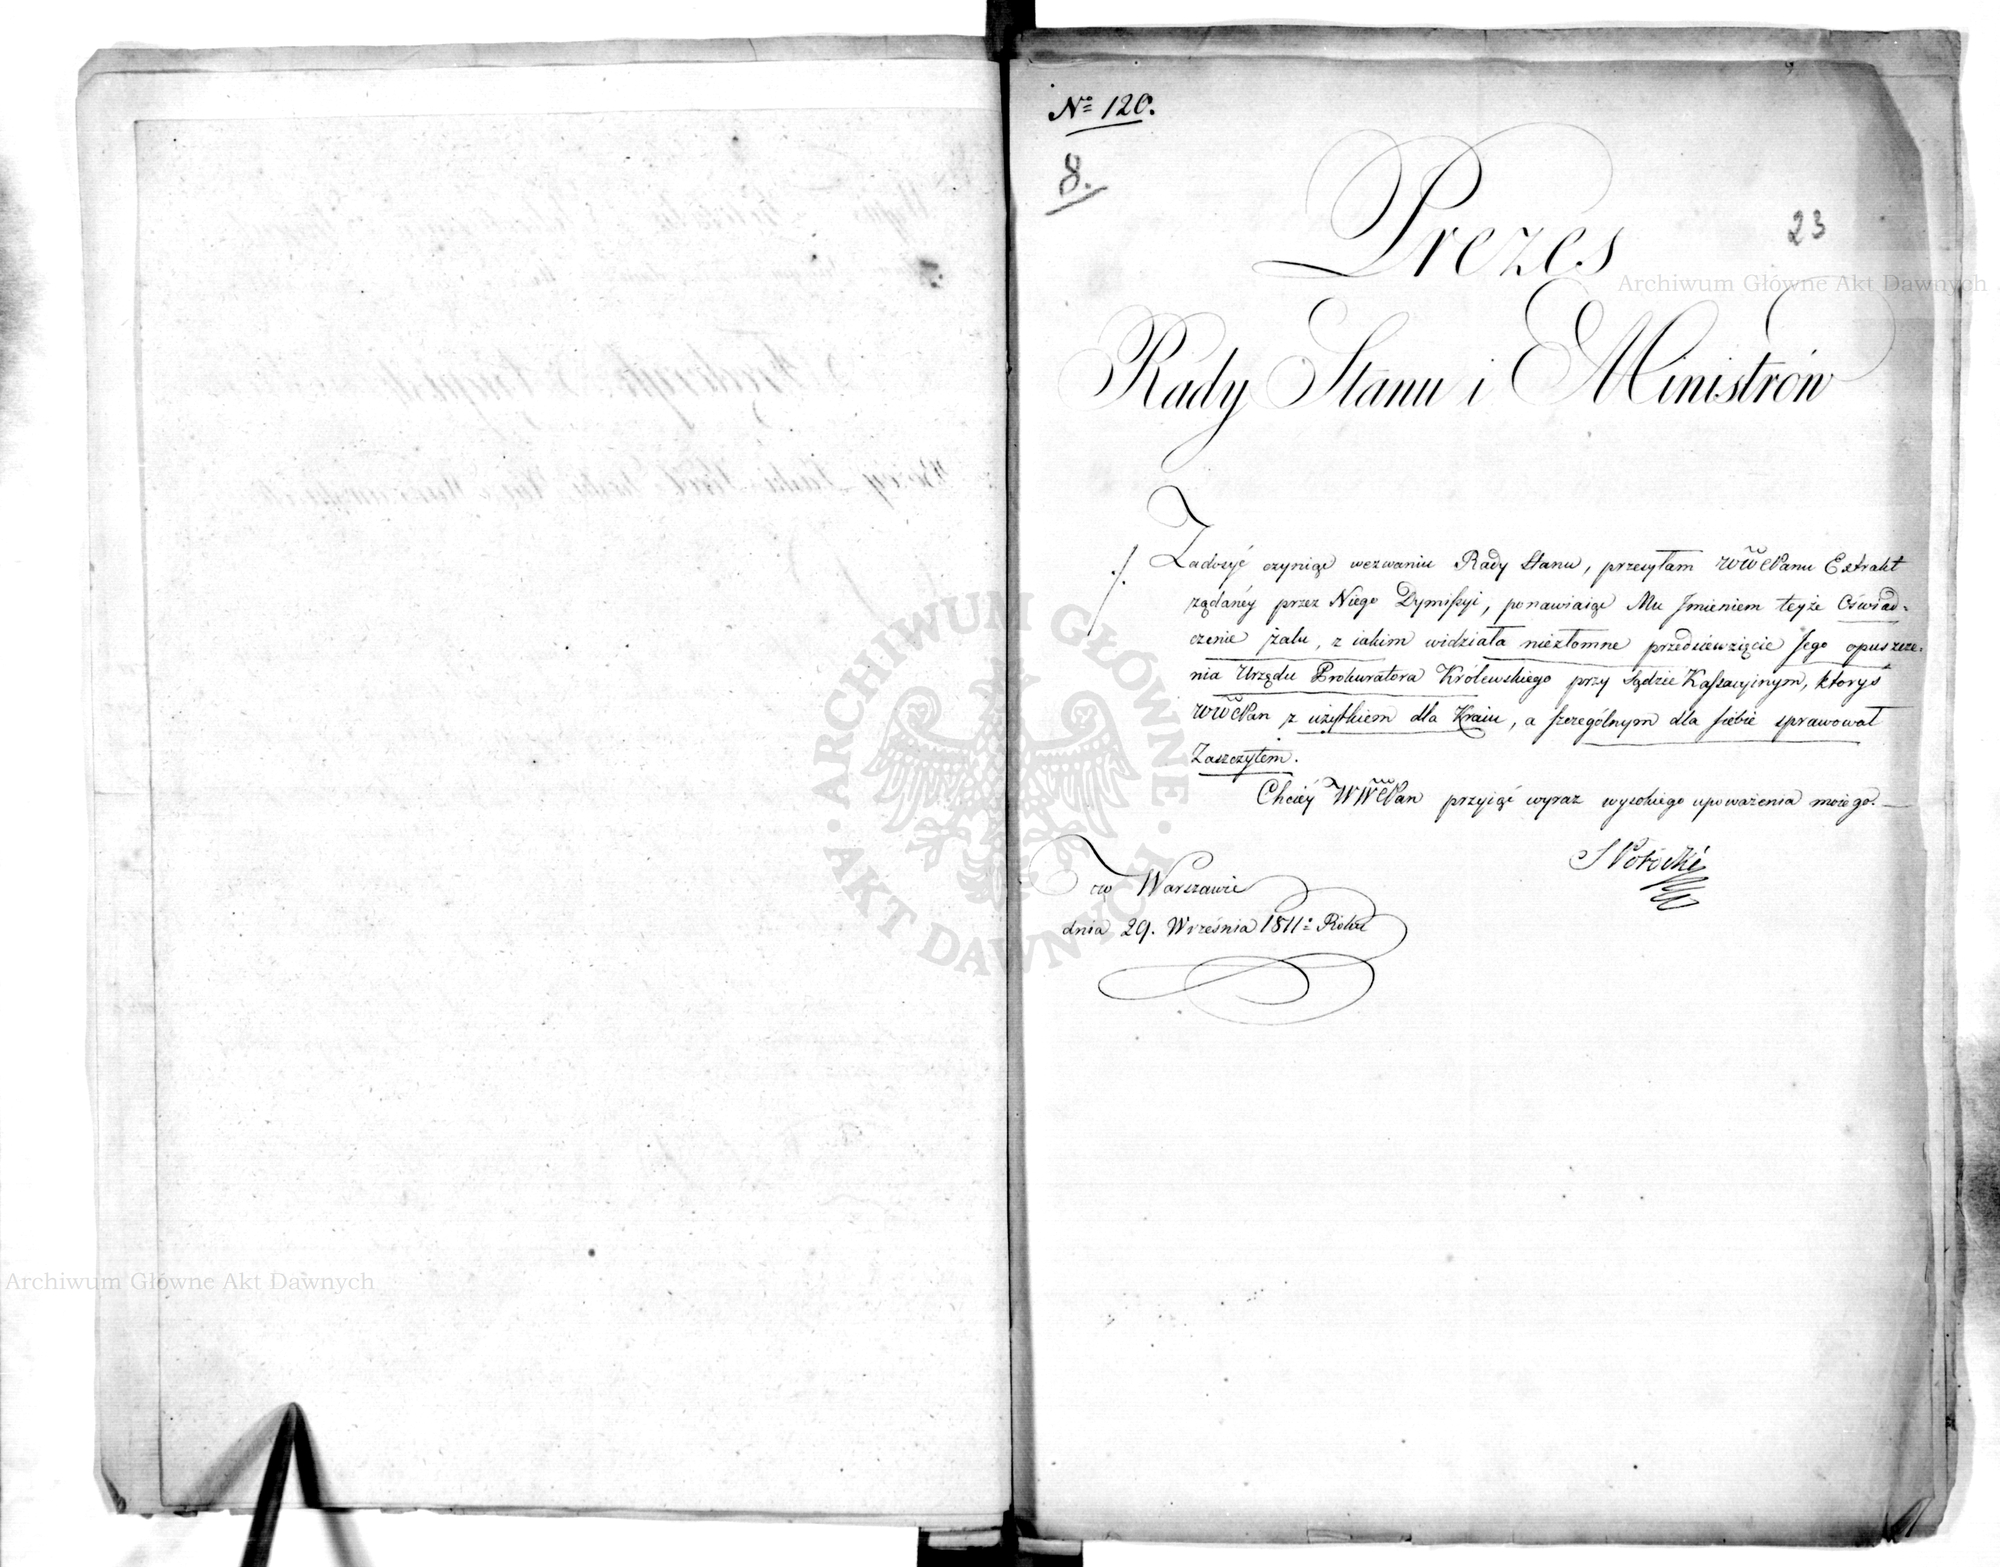 No 120.
8.
23
Prezes
Rady Stanu i Ministrów
Zadosyć czyniąc wezwaniu Rady Stanu, przesyłam WWMPanu Extrakt
żądaney przez Niego Dymissyi, ponawiaiąc Mu Jmieniem teyże Oświad-
czenie żalu, z iakim widziała niezłomne przedsięwzięcie Jego opuszcze-
nia Urzędu Prokuratora Królewskiego przy Sądzie Kassacyinym, ktoryś
WWMPan z użytkiem dla Kraiu, a szczególnym dla siebie sprawował
Zaszczytem.
Chciey WWMPan przyiąć wyraz wysokiego upoważenia moiego.
S Potocki
w Warszawie
dnia 29. Września 1811 Roku
Archiwum Główne Akt Dawnych
Archiwum Główne Akt Dawnych
ARCHIWUM GŁÓWNE AKT DAWNYCH